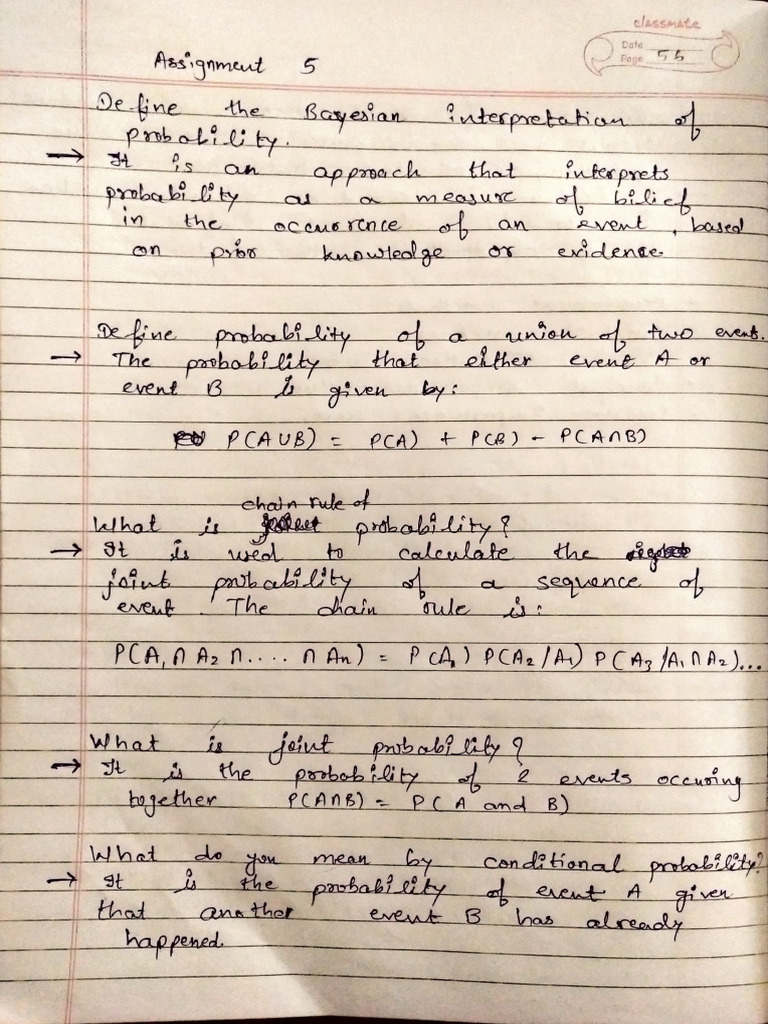 classmate
Date
Page 55
Assignment 5
Define the Bayesian interpretation of
probability.
→ It is an approach that interprets
probability as a measure of bilief
in the occurrence of an event, based
on prior knowledge or evidence
Define probability of a union of two event.
→ The probability that either event A or
event B is given by:
P(A∪B) = P(A) + P(B) - P(A∩B)
chain rule of
What is probability?
→ It is used to calculate the
joint probability of a sequence of
event. The chain rule is:
P(A₁ ∩ A₂ ∩ .... ∩ An) = P(A₁) P(A₂/A₁) P(A₃/A₁∩A₂)...
What is joint probability?
→ It is the probability of 2 events occuring
together P(A∩B) = P(A and B)
What do you mean by conditional probability?
→ It is the probability of event A given
that another event B has already
happened.